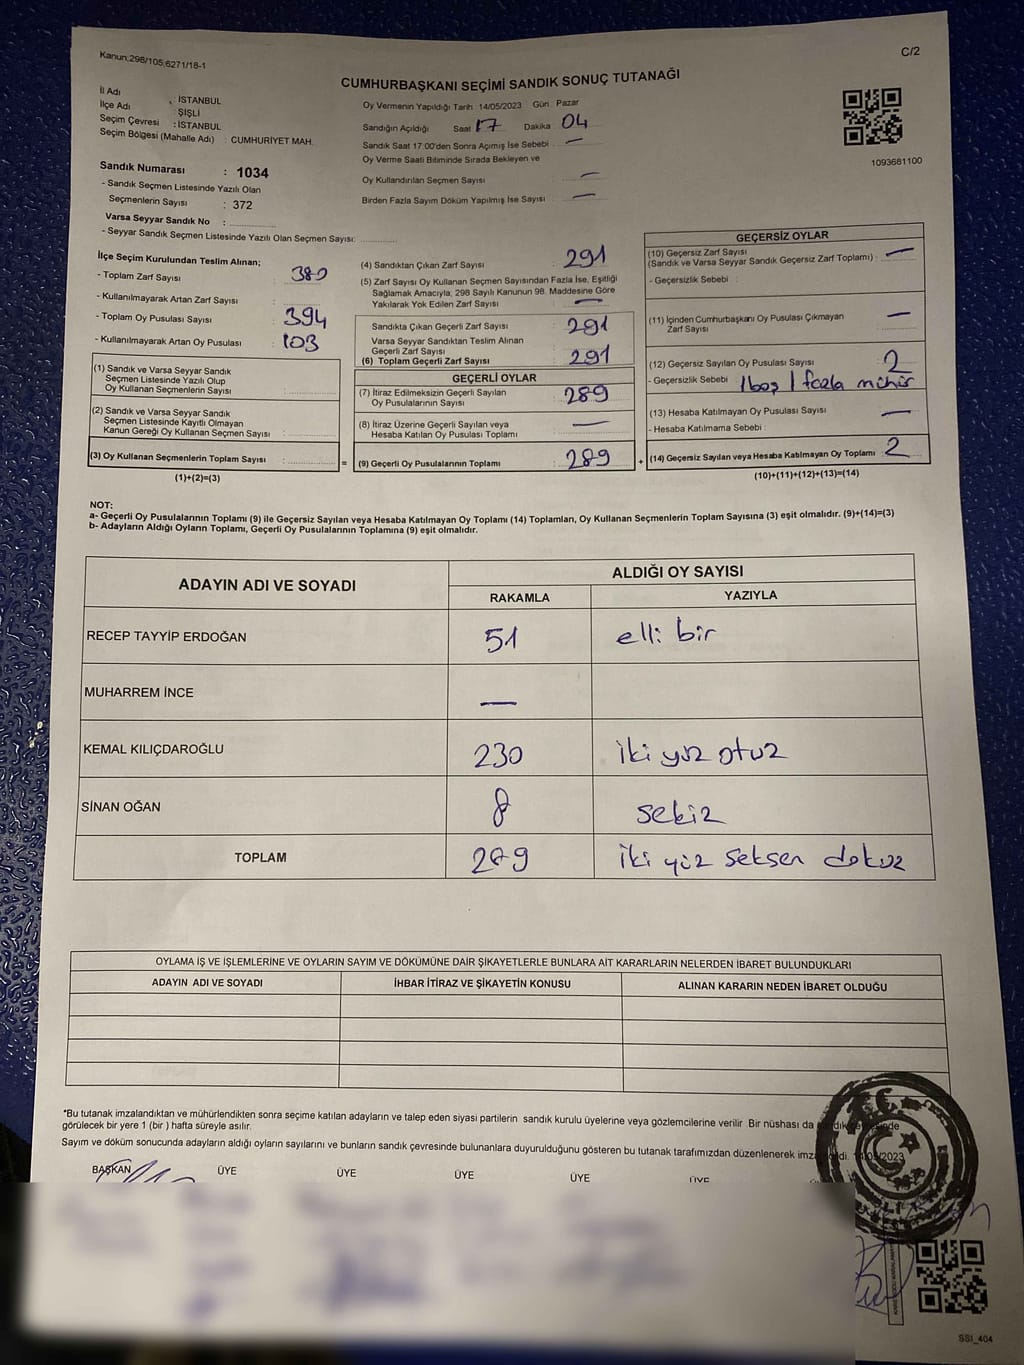 Kanun;298/105;6271/18-1
C/2
CUMHURBAŞKANI SEÇİMİ SANDIK SONUÇ TUTANAĞI
İl Adı : İSTANBUL
İlçe Adı ŞİŞLİ
Seçim Çevresi : İSTANBUL
Seçim Bölgesi (Mahalle Adı) : CUMHURİYET MAH.
Sandık Numarası : 1034
- Sandık Seçmen Listesinde Yazılı Olan
Seçmenlerin Sayısı : 372
Varsa Seyyar Sandık No :
- Seyyar Sandık Seçmen Listesinde Yazılı Olan Seçmen Sayısı:
Oy Vermenin Yapıldığı Tarih 14/05/2023 Gün Pazar
Sandığın Açıldığı Saat 17 Dakika 04
Sandık Saat 17:00'den Sonra Açımış İse Sebebi —
Oy Verme Saati Bitiminde Sırada Bekleyen ve
Oy Kullandırılan Seçmen Sayısı —
Birden Fazla Sayım Döküm Yapılmış İse Sayısı —
1093681100
İlçe Seçim Kurulundan Teslim Alınan;
- Toplam Zarf Sayısı : 380
- Kullanılmayarak Artan Zarf Sayısı :
- Toplam Oy Pusulası Sayısı : 394
- Kullanılmayarak Artan Oy Pusulası : 103
(1) Sandık ve Varsa Seyyar Sandık
Seçmen Listesinde Yazılı Olup
Oy Kullanan Seçmenlerin Sayısı :
(2) Sandık ve Varsa Seyyar Sandık
Seçmen Listesinde Kayıtlı Olmayan
Kanun Gereği Oy Kullanan Seçmen Sayısı :
(3) Oy Kullanan Seçmenlerin Toplam Sayısı :
(1)+(2)=(3)
(4) Sandıktan Çıkan Zarf Sayısı : 291
(5) Zarf Sayısı Oy Kullanan Seçmen Sayısından Fazla İse, Eşitliği
Sağlamak Amacıyla; 298 Sayılı Kanunun 98. Maddesine Göre
Yakılarak Yok Edilen Zarf Sayısı —
Sandıkta Çıkan Geçerli Zarf Sayısı : 291
Varsa Seyyar Sandıktan Teslim Alınan
Geçerli Zarf Sayısı :
(6) Toplam Geçerli Zarf Sayısı : 291
GEÇERLİ OYLAR
(7) İtiraz Edilmeksizin Geçerli Sayılan
Oy Pusulalarının Sayısı : 289
(8) İtiraz Üzerine Geçerli Sayılan veya
Hesaba Katılan Oy Pusulası Toplamı : —
= (9) Geçerli Oy Pusulalarının Toplamı : 289 +
GEÇERSİZ OYLAR
(10) Geçersiz Zarf Sayısı
(Sandık ve Varsa Seyyar Sandık Geçersiz Zarf Toplamı) : —
- Geçersizlik Sebebi :
(11) İçinden Cumhurbaşkanı Oy Pusulası Çıkmayan
Zarf Sayısı : —
(12) Geçersiz Sayılan Oy Pusulası Sayısı : 2
- Geçersizlik Sebebi 1 boş 1 fazla mühür
(13) Hesaba Katılmayan Oy Pusulası Sayısı : —
- Hesaba Katılmama Sebebi :
(14) Geçersiz Sayılan veya Hesaba Katılmayan Oy Toplamı : 2
(10)+(11)+(12)+(13)=(14)
NOT:
a- Geçerli Oy Pusulalarının Toplamı (9) ile Geçersiz Sayılan veya Hesaba Katılmayan Oy Toplamı (14) Toplamları, Oy Kullanan Seçmenlerin Toplam Sayısına (3) eşit olmalıdır. (9)+(14)=(3)
b- Adayların Aldığı Oyların Toplamı, Geçerli Oy Pusulalarının Toplamına (9) eşit olmalıdır.
ADAYIN ADI VE SOYADI ALDIĞI OY SAYISI
RAKAMLA YAZIYLA
RECEP TAYYİP ERDOĞAN 51 elli bir
MUHARREM İNCE —
KEMAL KILIÇDAROĞLU 230 iki yüz otuz
SİNAN OĞAN 8 sekiz
TOPLAM 289 iki yüz seksen dokuz
OYLAMA İŞ VE İŞLEMLERİNE VE OYLARIN SAYIM VE DÖKÜMÜNE DAİR ŞİKAYETLERLE BUNLARA AİT KARARLARIN NELERDEN İBARET BULUNDUKLARI
ADAYIN ADI VE SOYADI İHBAR İTİRAZ VE ŞİKAYETİN KONUSU ALINAN KARARIN NEDEN İBARET OLDUĞU
*Bu tutanak imzalandıktan ve mühürlendikten sonra seçime katılan adayların ve talep eden siyasi partilerin sandık kurulu üyelerine veya gözlemcilerine verilir. Bir nüshası da
görülecek bir yere 1 (bir ) hafta süreyle asılır.
Sayım ve döküm sonucunda adayların aldığı oyların sayılarını ve bunların sandık çevresinde bulunanlara duyurulduğunu gösteren bu tutanak tarafımızdan düzenlenerek
BAŞKAN ÜYE ÜYE ÜYE ÜYE ÜYE
SSI_404